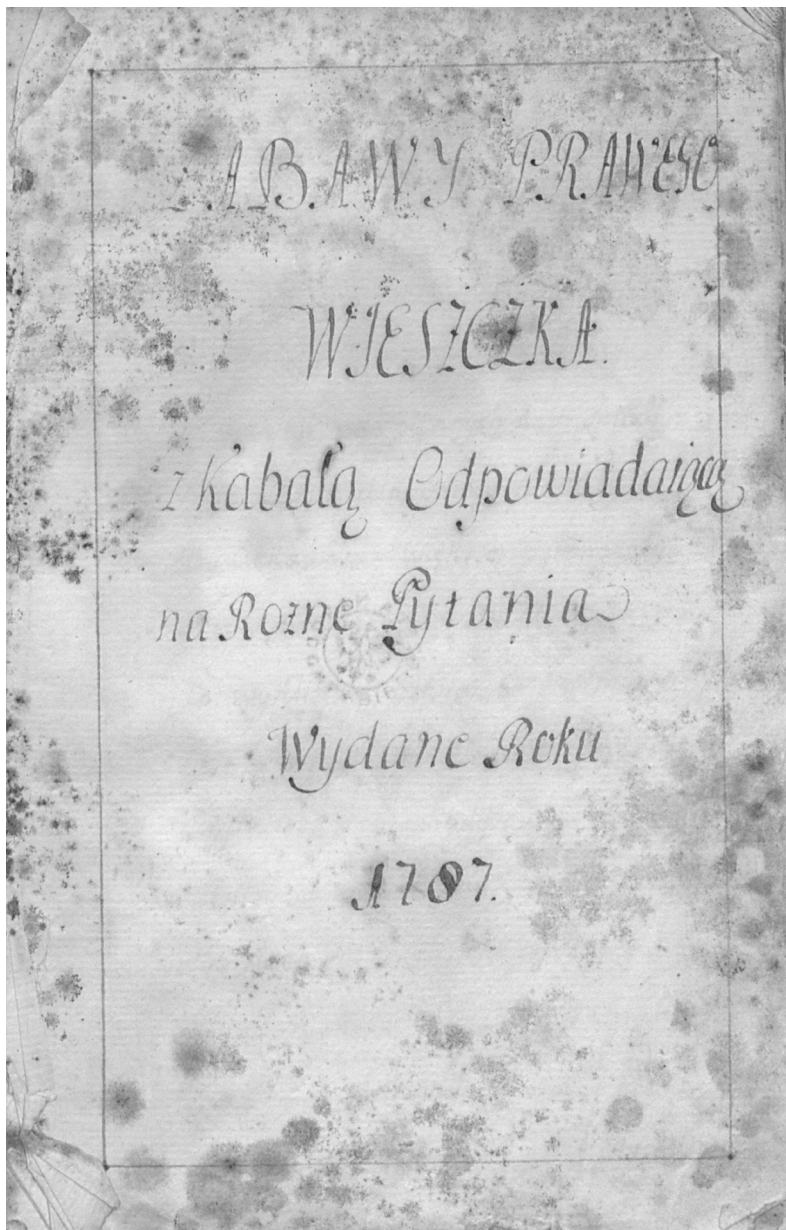 ZABAWY PRAWEGO
WIESZCZKA.
z Kabałą Odpowiadaiącą
na Rożne Pytania
Wydane Roku
1787.